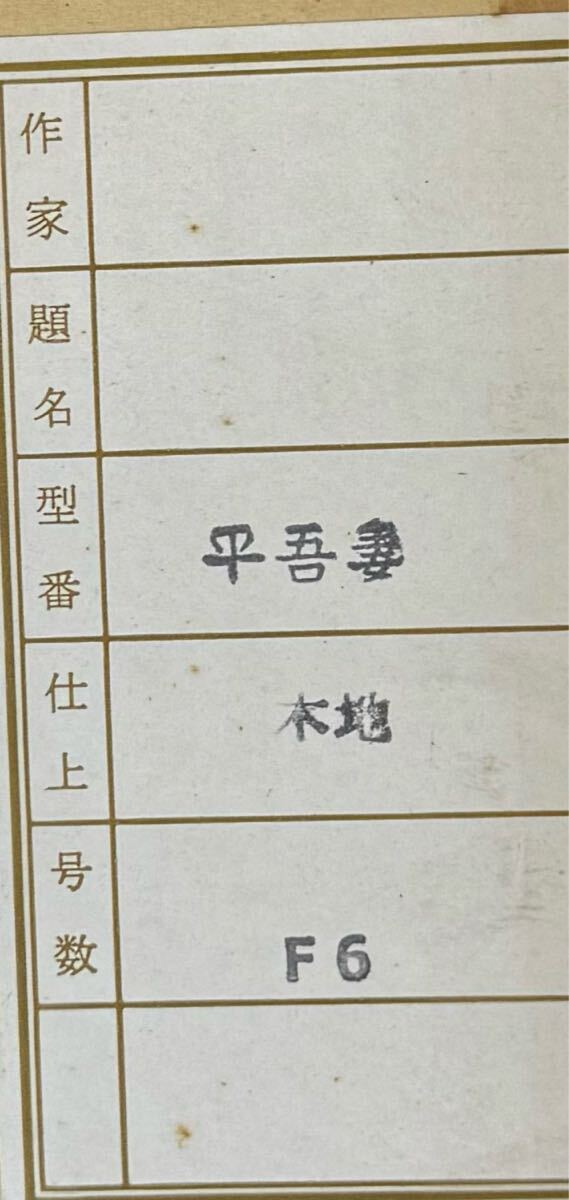 作家
題名
型番 平吾妻
仕上 木地
号数 F6